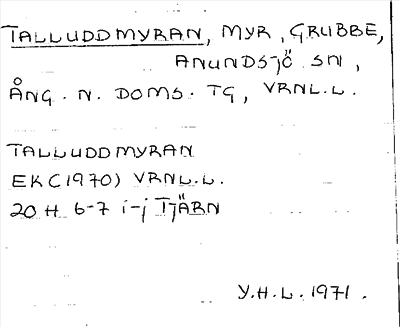 TALLUDDMYRAN, MYR, GRUBBE,
ANUNDSJÖ SN,
ÅNG. N. DOMS. TG, VRNL.L.
TALLUDDMYRAN
EK (1970) VRNL.L.
20 H 6-7 i-j TJÄRN
Y.H.L. 1971.